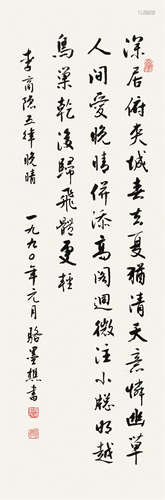 深居俯夾城春去夏猶清天意憐幽草
人間愛晚晴併添高閣迥微注小窗明越
鳥巢乾後歸飛體更輕
李商隱五律晚晴 一九九〇年元月 駱墨樵書